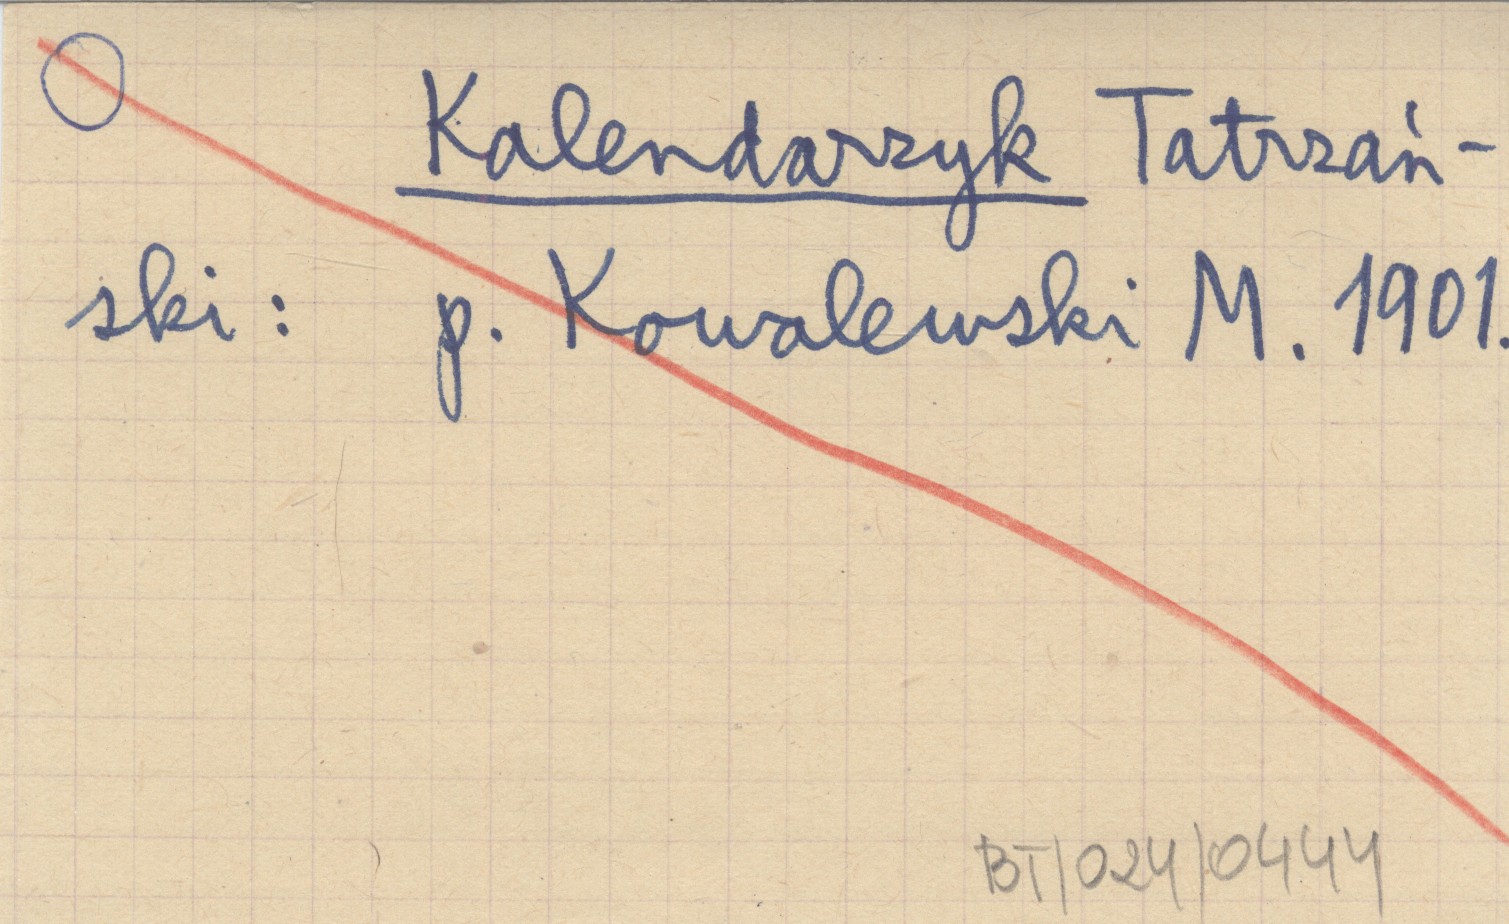 Kalendarzyk Tatrzań-
ski: p. Kowalewski M. 1901.
BT/024/0444